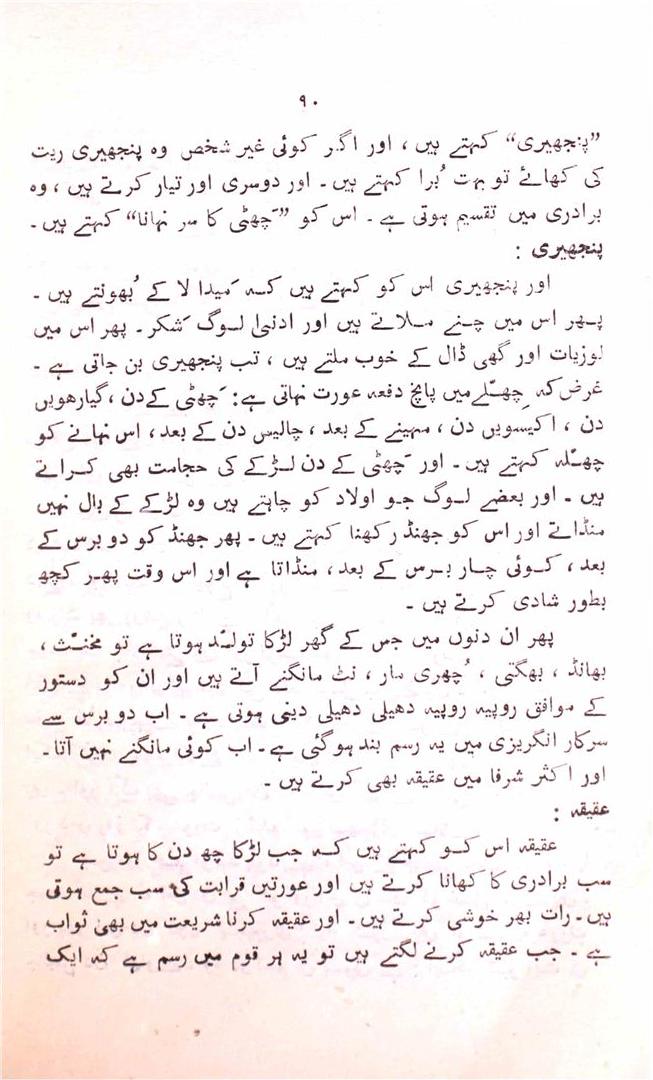 ۹۰
”پنجھیری“ کہتے ہیں ، اور اگر کوئی غیر شخص وہ پنجھیری ریت
کی کھائے تو بہت بُرا کہتے ہیں ۔ اور دوسری اور تیار کرتے ہیں ، وہ
برادری میں تقسیم ہوتی ہے ۔ اس کو ”چَھٹی کا سر نہانا“ کہتے ہیں ۔
پنجھیری :
اور پنجھیری اس کو کہتے ہیں کہ مَیدا لا کے بُھونتے ہیں ۔
پھر اس میں چنے ملاتے ہیں اور ادنیٰ لوگ شَکر ۔ پھر اس میں
لوزیات اور گھی ڈال کے خوب ملتے ہیں ، تب پنجھیری بن جاتی ہے ۔
غرض کہ چِھلّے میں پانچ دفعہ عورت نہاتی ہے : چَھٹی کے دن ، گیارھویں
دن ، اکیسویں دن ، مہینے کے بعد ، چالیس دن کے بعد ، اس نہانے کو
چھلّہ کہتے ہیں ۔ اور چَھٹی کے دن لڑکے کی حجامت بھی کراتے
ہیں ۔ اور بعضے لوگ جو اولاد کو چاہتے ہیں وہ لڑکے کے بال نہیں
منڈاتے اور اس کو جھنڈ رکھنا کہتے ہیں ۔ پھر جھنڈ کو دو برس کے
بعد ، کوئی چار برس کے بعد ، منڈاتا ہے اور اس وقت پھر کچھ
بطور شادی کرتے ہیں ۔
پھر ان دنوں میں جس کے گھر لڑکا تولّد ہوتا ہے تو مخنّث ،
بھانڈ ، بھگتی ، چُھری مار ، نٹ مانگنے آتے ہیں اور ان کو دستور
کے موافق روپیہ روپیہ دھیلی دھیلی دینی ہوتی ہے ۔ اب دو برس سے
سرکار انگریزی میں یہ رسم بند ہوگئی ہے ۔ اب کوئی مانگنے نہیں آتا ۔
اور اکثر شرفا میں عقیقہ بھی کرتے ہیں ۔
عقیقہ :
عقیقہ اس کو کہتے ہیں کہ جب لڑکا چھ دن کا ہوتا ہے تو
سب برادری کا کھانا کرتے ہیں اور عورتیں قرابت کی سب جمع ہوتی
ہیں ۔ رات بھر خوشی کرتے ہیں ۔ اور عقیقہ کرنا شریعت میں بھی ثواب
ہے ۔ جب عقیقہ کرنے لگتے ہیں تو یہ ہر قوم میں رسم ہے کہ ایک